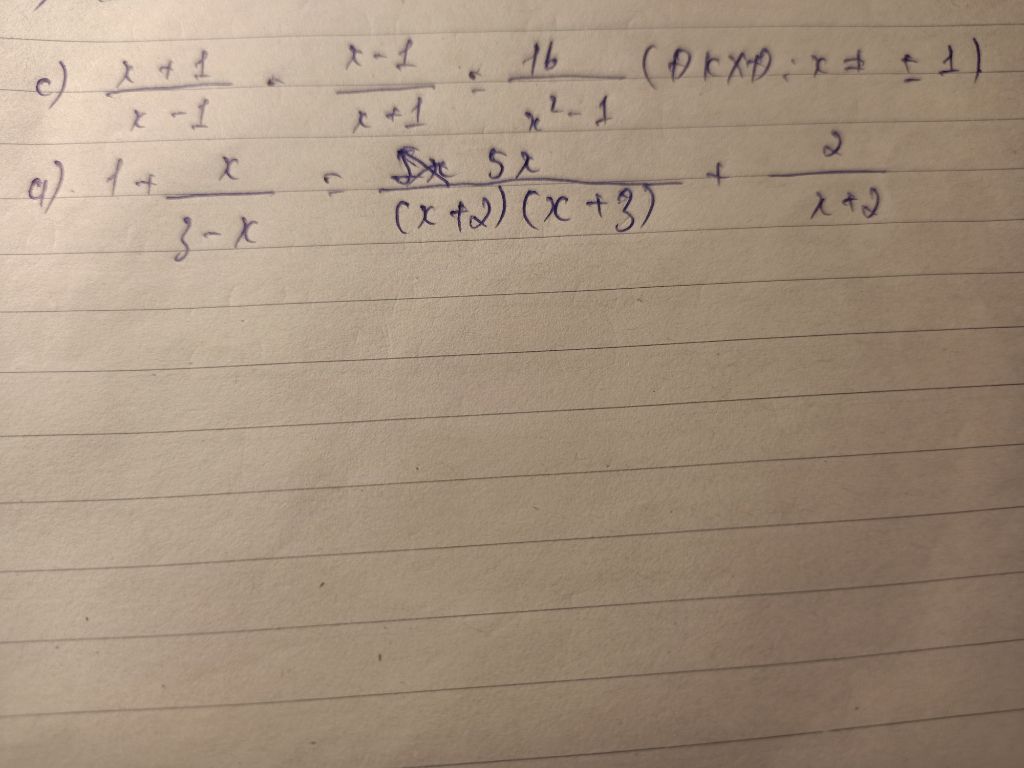 c) \frac{x+1}{x-1} - \frac{x-1}{x+1} = \frac{16}{x^2-1} (ĐKXĐ: x ≠ ± 1)
a). 1 + \frac{x}{3-x} = \frac{5x}{(x+2)(x+3)} + \frac{2}{x+2}